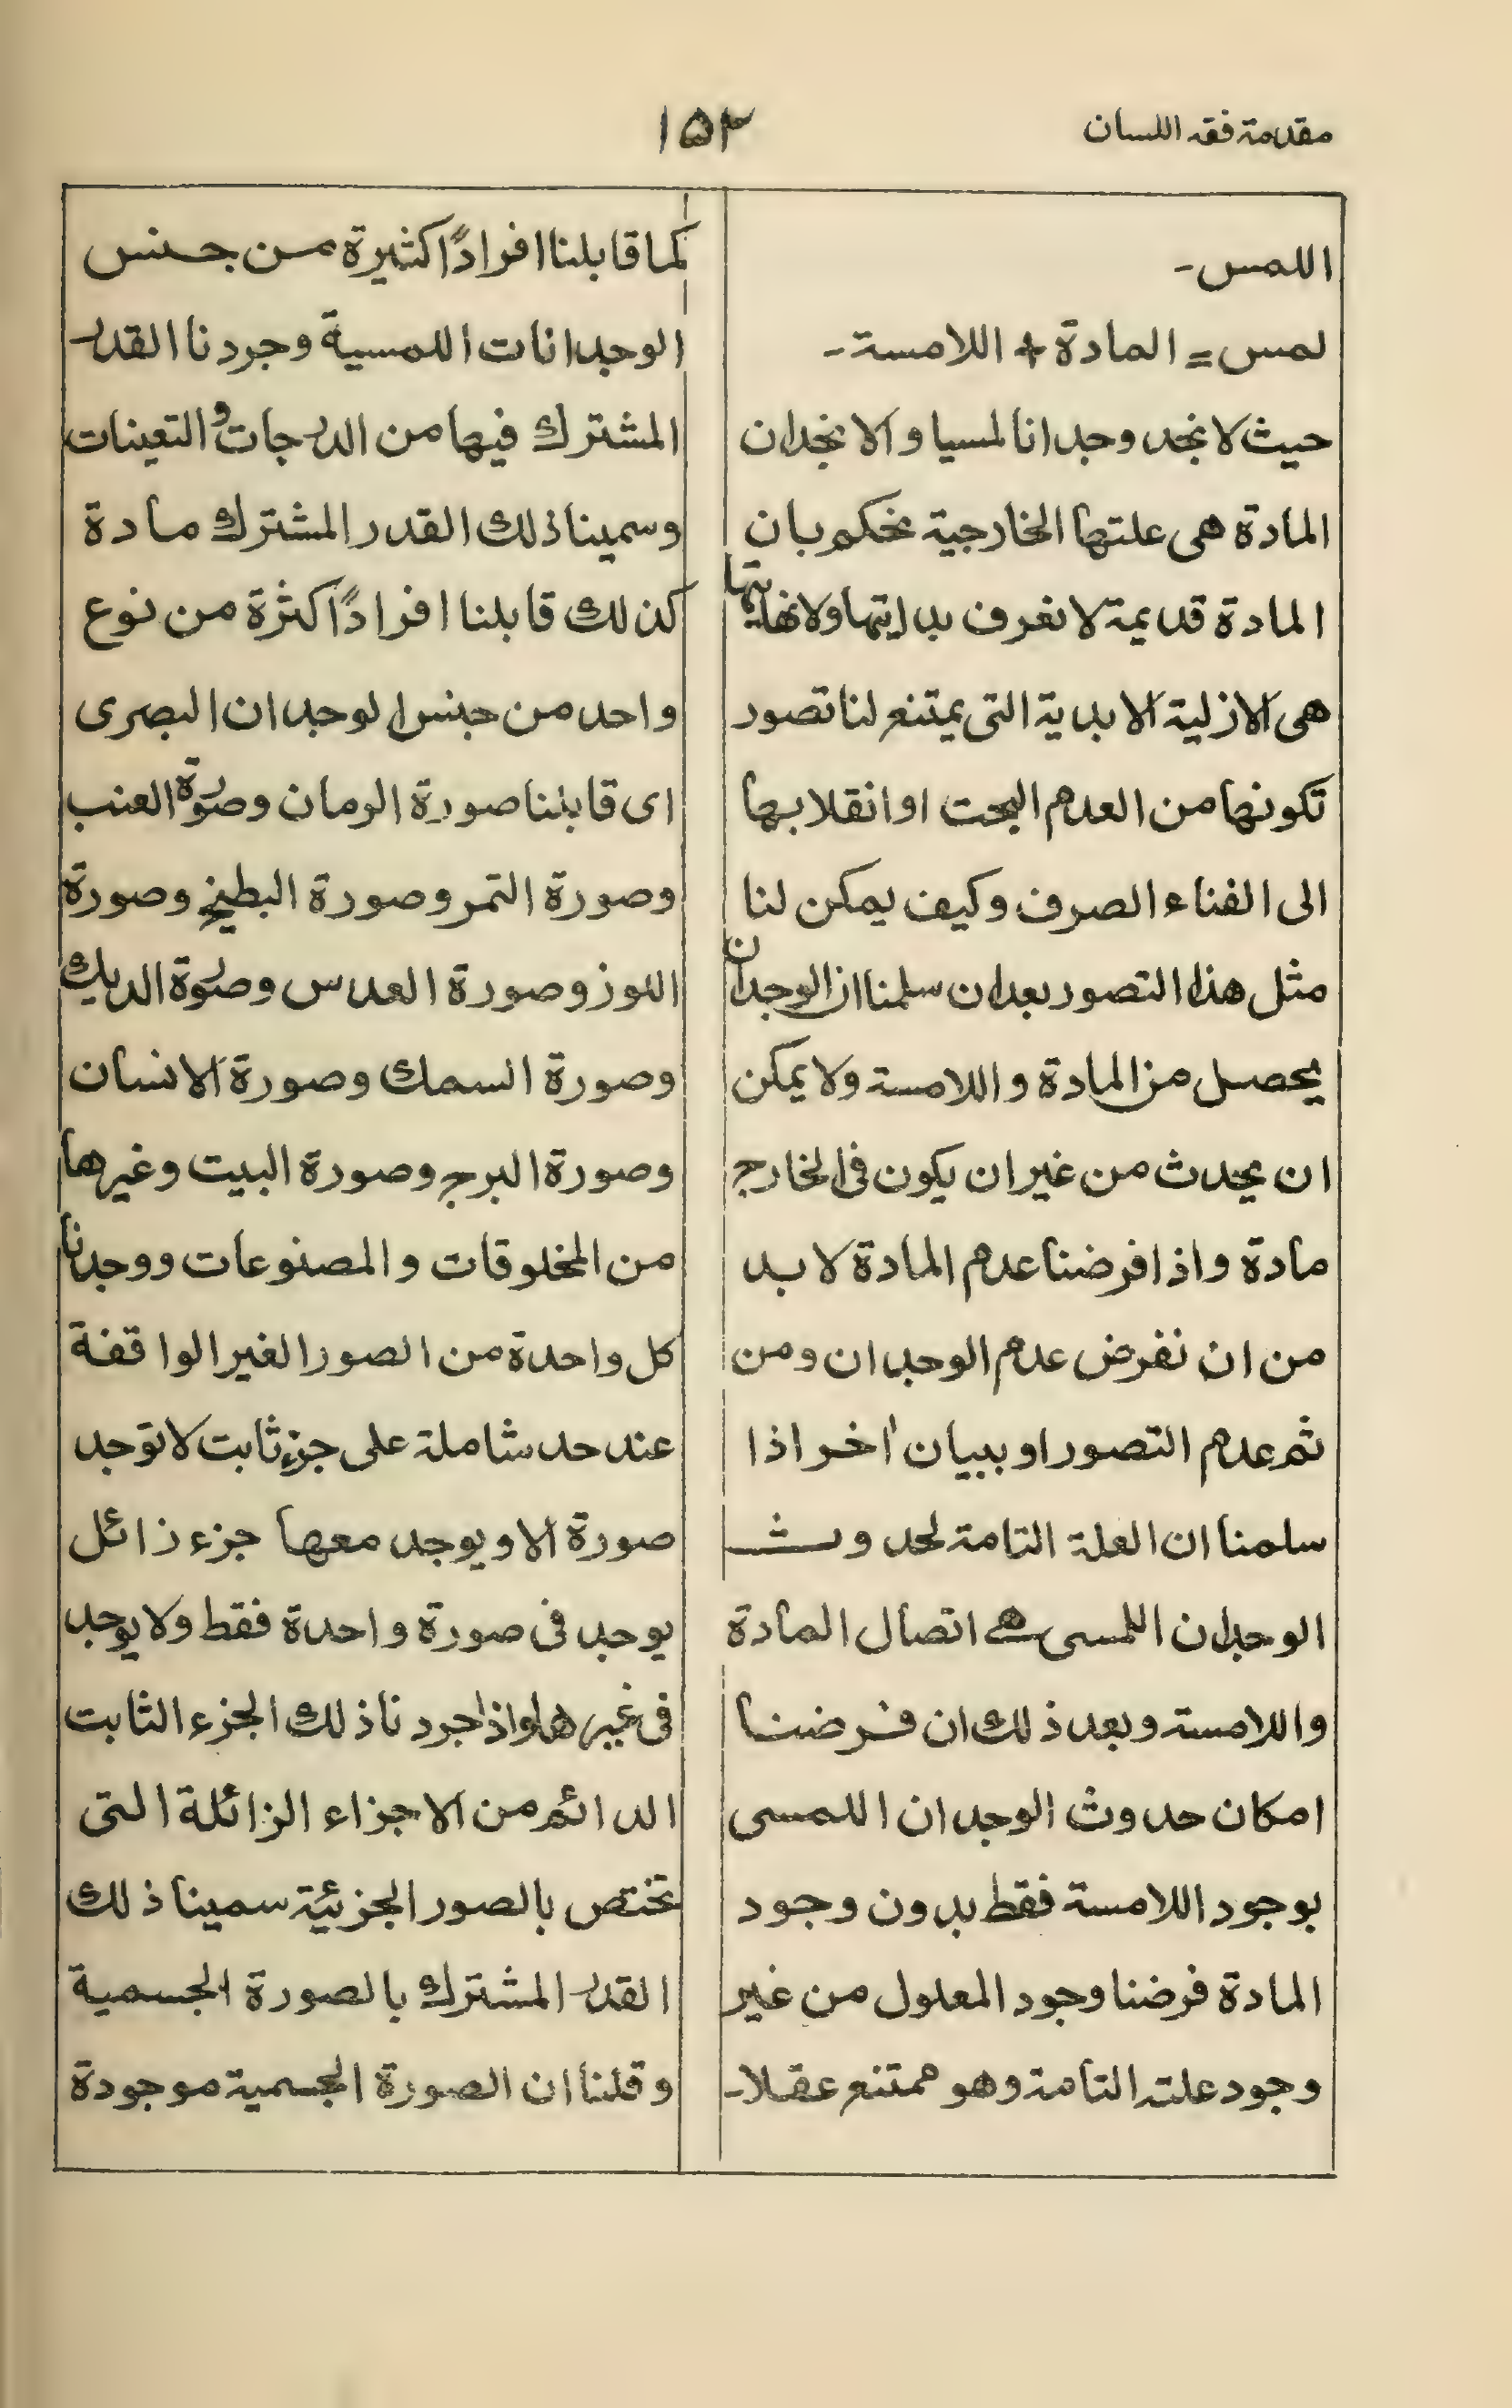 مقدمة فقه اللسان
١٥٣
اللمس-
لمس = المادة + اللامسة-
حيث لا نجد وجدانا لمسيا والا نجد ان
المادة هى علتها الخارجية نحكم بان
المادة قديمة لا نعرف بدايتها ولا نهايتها
هى الازلية الابدية التى يمتنع لنا تصور
تكونها من العدم البحت او انقلابها
الى الفناء الصرف وكيف يمكن لنا
مثل هذا التصور بعد ان سلمنا ان الوجدان
يحصل من المادة واللامسة ولا يمكن
ان يحدث من غير ان يكون فى الخارج
مادة واذا فرضنا عدم المادة لا بد
من ان نفرض عدم الوجدان ومن
ثم عدم التصور او ببيان اٰخر اذا
سلمنا ان العلة التامة لحدوث
الوجدان اللمسى هى اتصال المادة
واللامسة وبعد ذلك ان فرضنا
امكان حدوث الوجدان اللمسى
بوجود اللامسة فقط بدون وجود
المادة فرضنا وجود المعلول من غير
وجود علته التامة وهو ممتنع عقلا-
كما قابلنا افرادًا كثيرة من جنس
الوجدانات اللمسية وجردنا القدر
المشترك فيها من الدرجات والتعينات
وسمينا ذلك القدر المشترك مادة
كذلك قابلنا افرادًا كثرة من نوع
واحد من جنس الوجدان البصرى
اى قابلنا صورة الرمان وصورة العنب
وصورة التمر وصورة البطيخ وصورة
اللوز وصورة العدس وصورة الديك
وصورة السمك وصورة الانسان
وصورة البرج وصورة البيت وغيرها
من المخلوقات والمصنوعات ووجدنا
كل واحدة من الصور الغير الواقفة
عند حد شاملة على جزء ثابت لا توجد
صورة الا ويوجد معها جزء زائل
يوجد فى صورة واحدة فقط ولا يوجد
فى غيرها واذا جردنا ذلك الجزء الثابت
الدائم من الاجزاء الزائلة التى
تختص بالصور الجزئية سمينا ذلك
القدر المشترك بالصورة الجسمية
وقلنا ان الصورة الجسمية موجودة